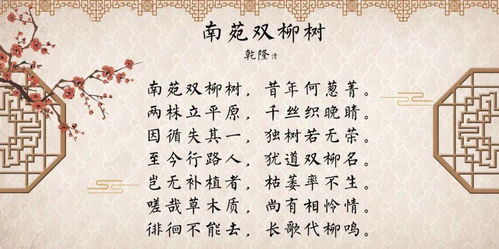 南苑双柳树
乾隆 清
南苑双柳树，昔年何葱菁。
两株立平原，千丝织晚晴。
因循失其一，独树若无荣。
至今行路人，犹道双柳名。
岂无补植者，枯萎率不生。
嗟哉草木质，尚有相怜情。
徘徊不能去，长歌代柳鸣。